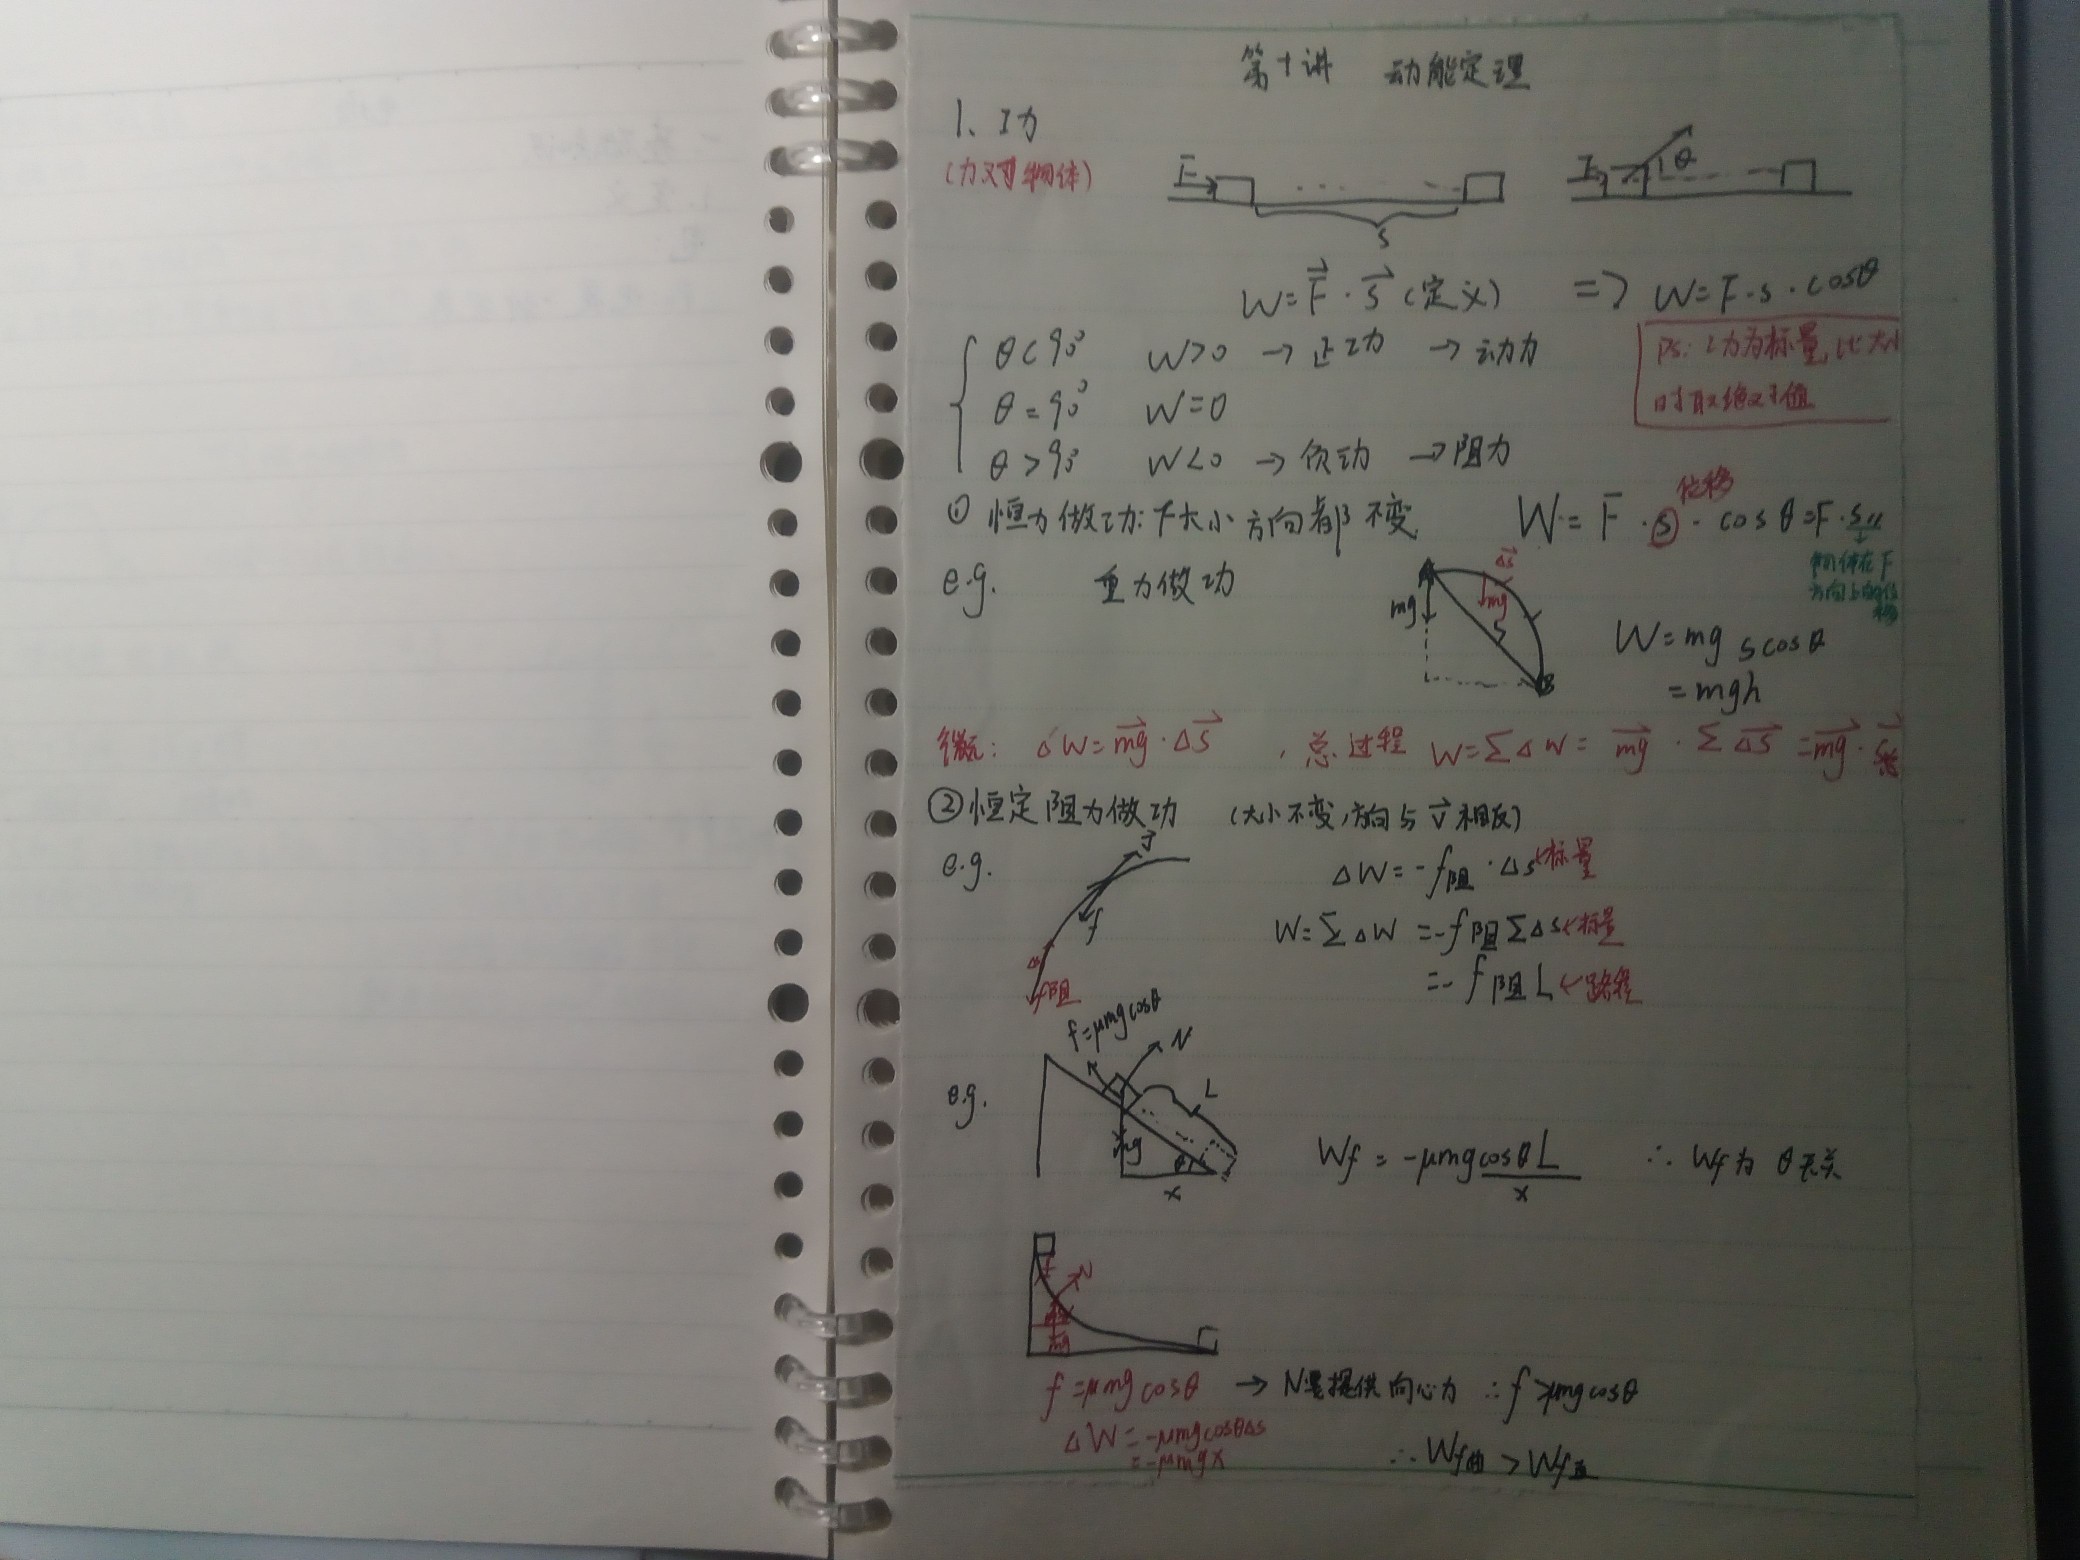 第十讲 动能定理
1、功
(力对物体)
F
F θ
S
W=F⃗·S⃗(定义) => W=F·s·cosθ
θ<90° W>0 →正功 →动力
PS:功为标量,比大小
θ=90° W=0
时取绝对值
θ>90° W<0 →负功 →阻力
位移
① 恒力做功:F大小方向都不变 W=F·S·cosθ=F·S∥
物体在F
方向上的位
移
e.g. 重力做功
A Δs⃗
mg mg
S
B
W=mg s cosθ
=mgh
微元: ΔW=mg⃗·ΔS⃗ ,总过程 W=ΣΔW=mg⃗·ΣΔS⃗=mg⃗·S⃗总
②恒定阻力做功 (大小不变,方向与v⃗相反)
e.g. v⃗
f
f阻
ΔW=-f阻·Δs←标量
W=ΣΔW=-f阻ΣΔs←标量
=-f阻L←路程
f=μmgcosθ N
e.g. L
mg θ
x
Wf=-μmgcosθL ∴Wf为θ无关
x
f N
mg
f=μmgcosθ →N要提供向心力 ∴f>μmgcosθ
ΔW=-μmgcosθΔs
=-μmgx
∴Wf曲>Wf直